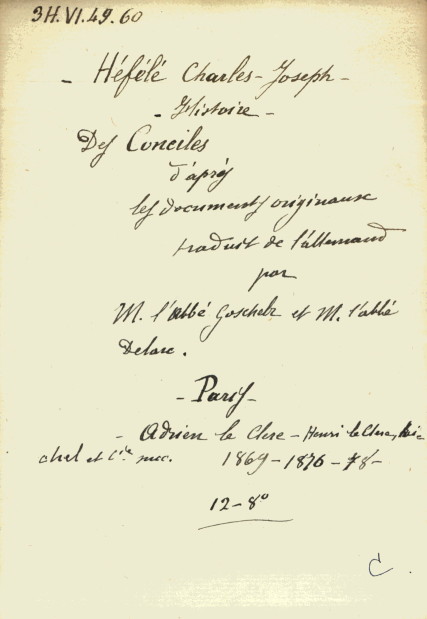 3H.VI.49.60
- Héfélé Charles-Joseph -
- Histoire -
Des Conciles
d'après
les documents originaux
traduit de l'allemand
par
M. l'abbé Goschelr et M. l'abbé
Delarc.
- Paris -
- Adrien le Clere - Henri le Clere, Rei
chel et Cie succ. 1869-1876-78-
12-8°
C.